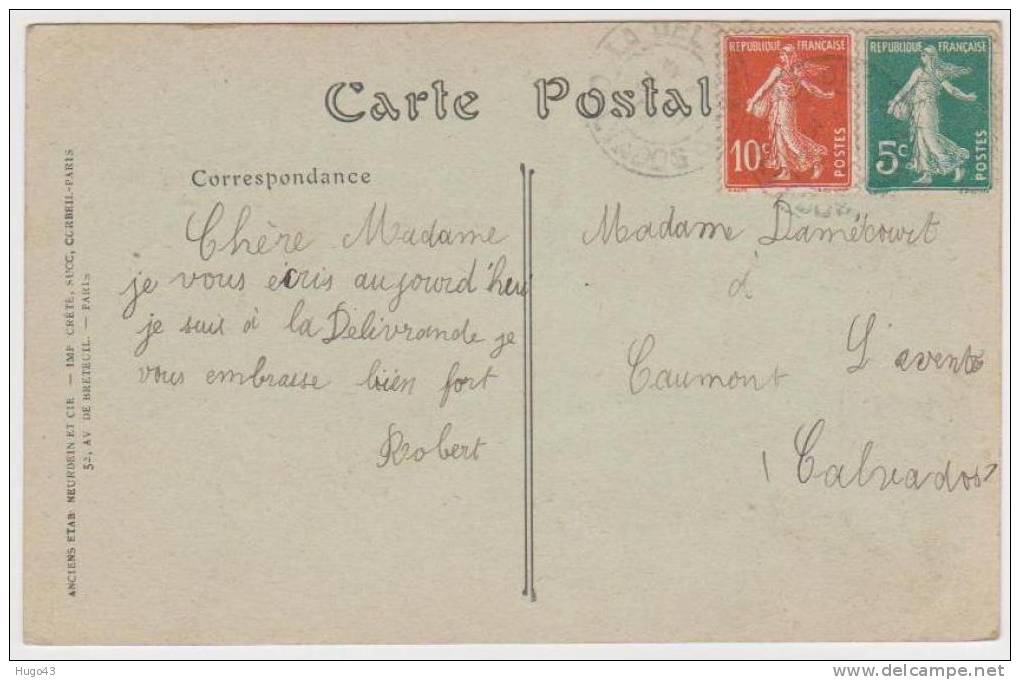 Carte Postal
LA DEL
RÉPUBLIQUE FRANÇAISE
10c
POSTES
RÉPUBLIQUE FRANÇAISE
5c
POSTES
Correspondance
Chère Madame
je vous écris aujourd'heu
je suis à la Délivrande je
vous embrasse bien fort
Robert
Madame Damécourt
à
Caumont L'eventé
(Calvados)
ANCIENS ETABts NEURDEIN ET CIE — IMP CRÉTÉ, SUCC, CORBEIL-PARIS
52, AV DE BRETEUIL — PARIS
Hugo43
www.delcampe.net